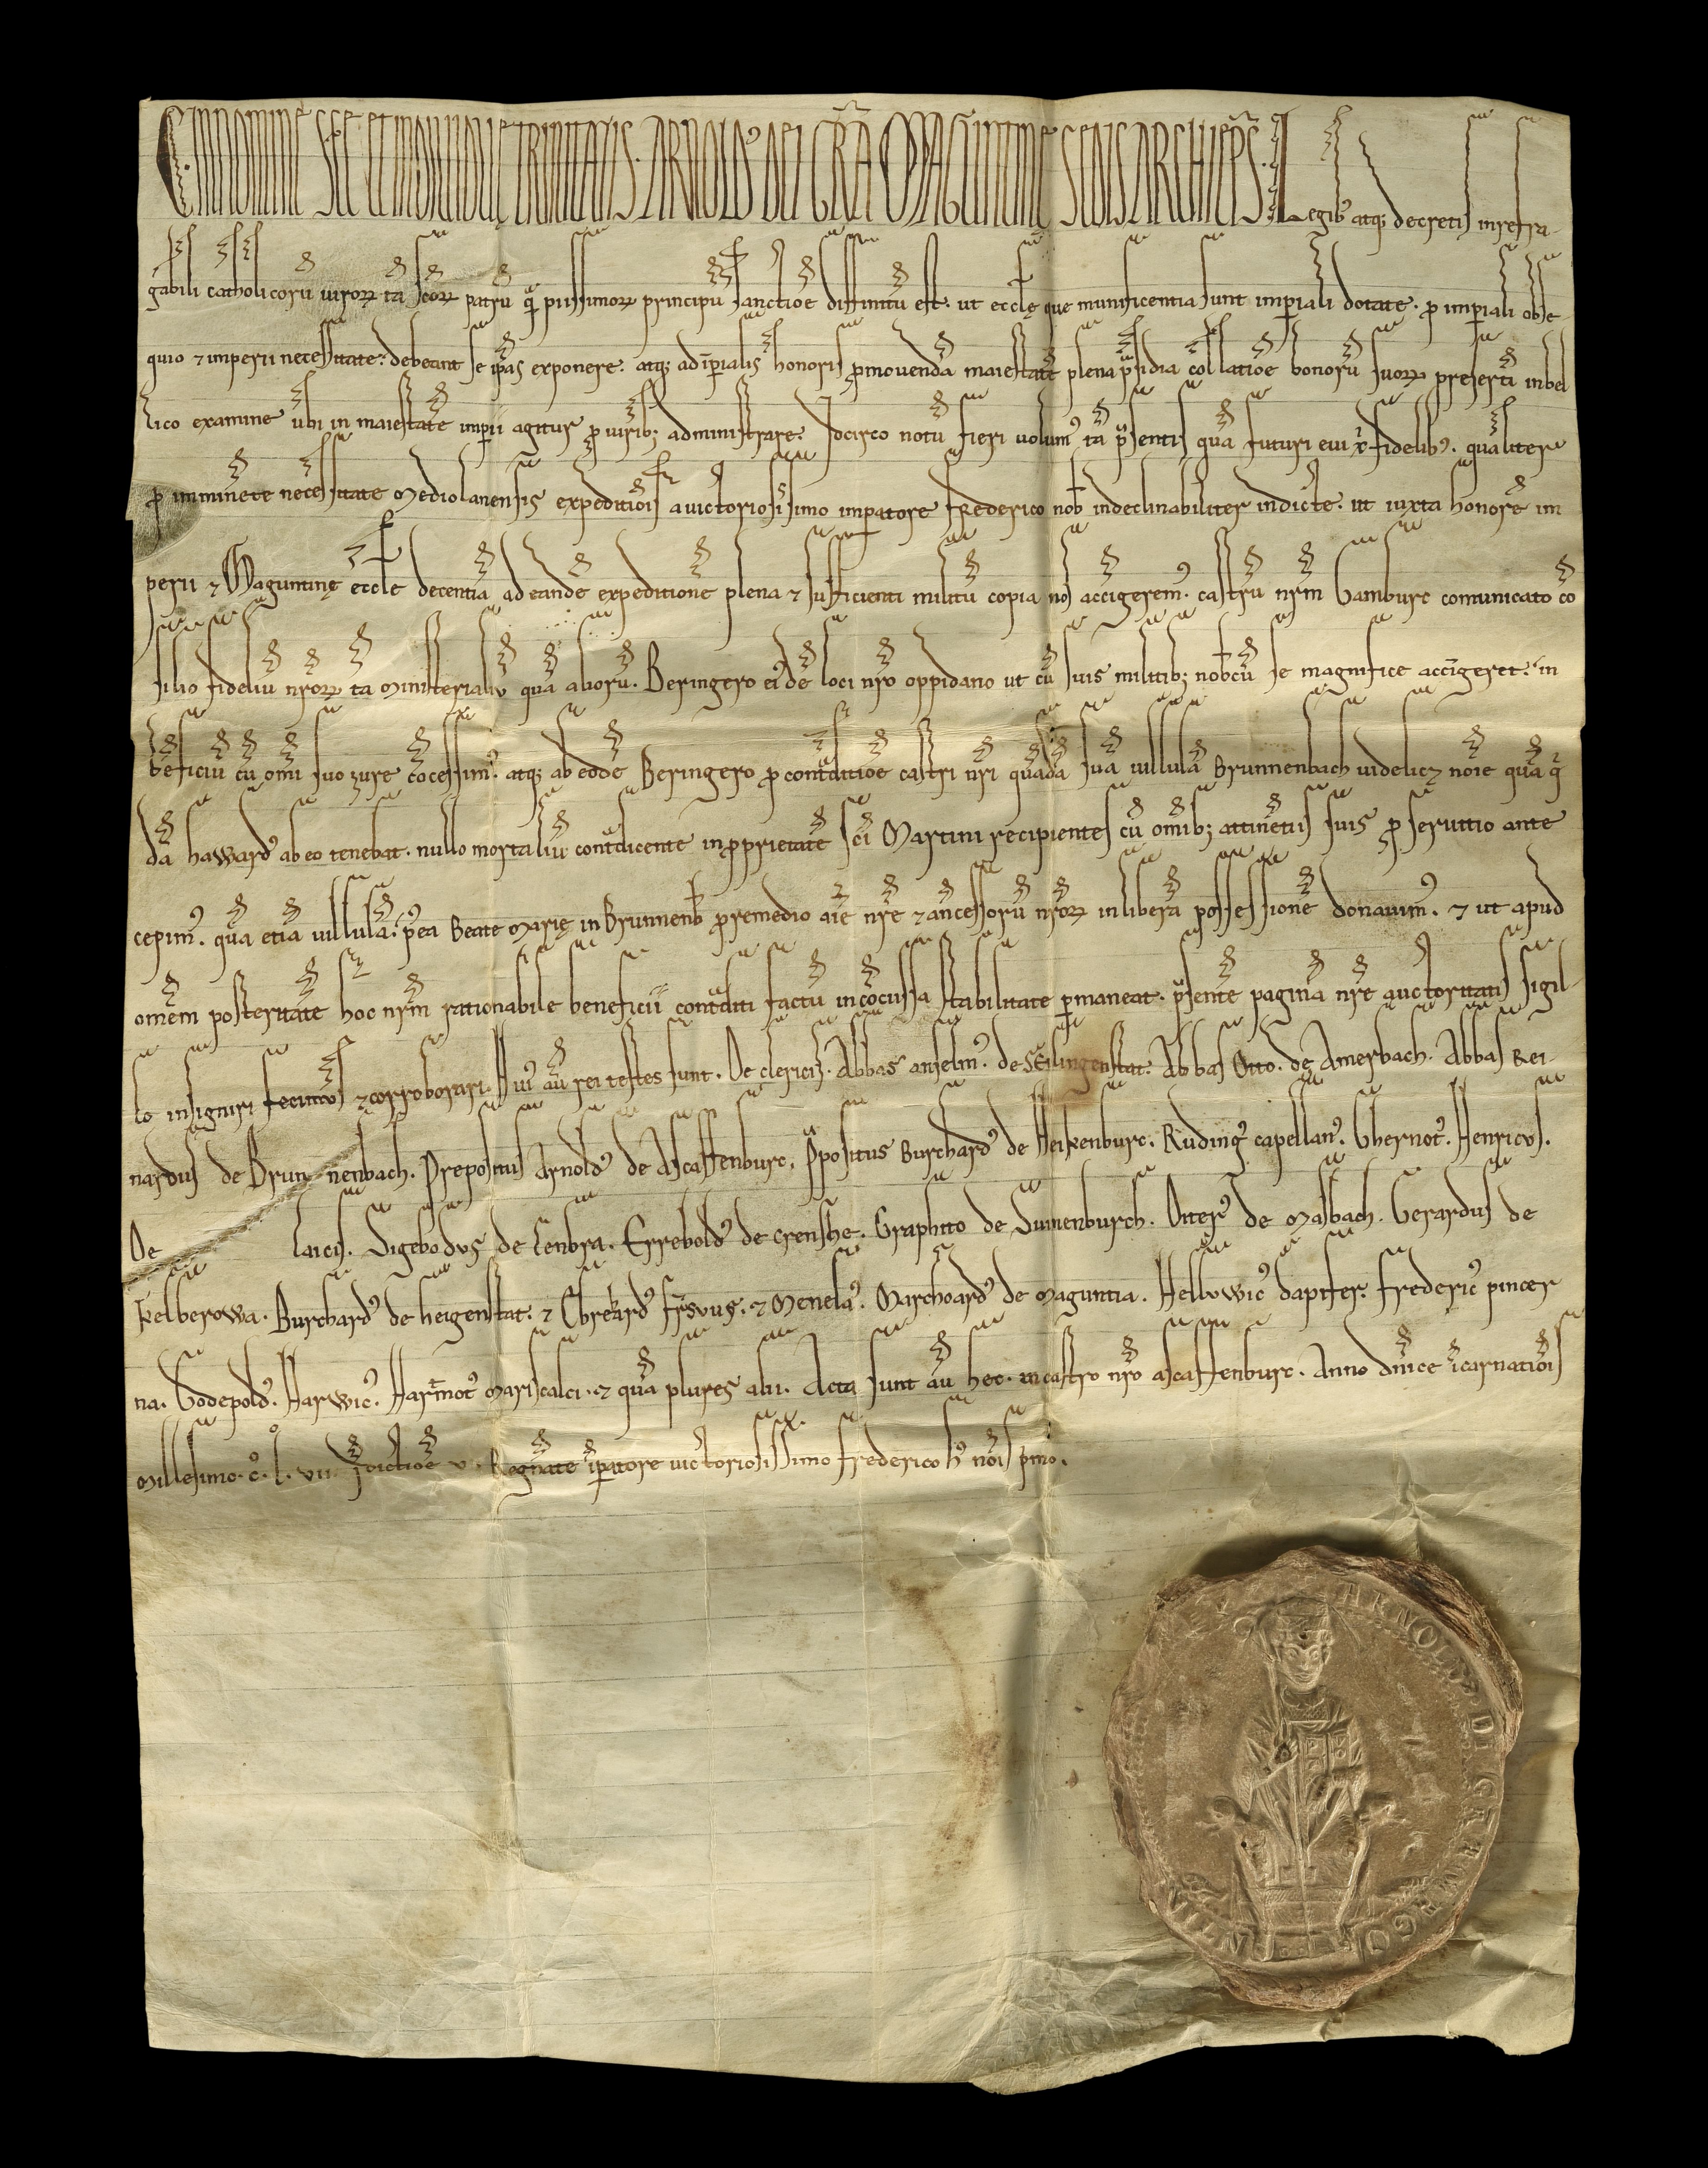 C. IN NOMINE SCE ET INDIVIDUE TRINITATIS. ARNOLD' DEI GRA MAGUNTINE SEDIS ARCHIEPS. Legib' atq; decretis inrefra-
gabili catholicorū uirorꝝ tā scorꝝ patrū qͣ piissimorꝝ principū sanctiōe diffinitū est. ut eccle que munificentia sunt imꝑiali dotate. ꝓ imꝑiali obse-
quio ⁊ imperii necessitate. debeant se ipas exponere. atq; ad iꝑialis honoris ꝓmouendā maiestatē plena pͣsidia collatiōe bonorū suorꝝ presertī in bel
lico examine ubi in maiestatē imꝑii agitur ꝓ uirib; administrare. Idcirco notū fieri uolum' tā pͣsentis quā futuri eui xͥ fidelib'. qualiter
ꝓ imminēte necessitate Mediolanensis expeditiōis a uictoriosissimo imꝑatore Frederico nob indeclinabiliter indicte. ut iuxta honorē im
perii ⁊ Maguntinę eccle decentiā ad eandē expeditionē plena ⁊ sufficienti militū copia nos accīgerem'. castrū nrm Gamburc comunicato cō
silio fideliū nrorꝝ tā ministerialiū quā aliorū. Beringero ei'dē loci nro oppidano ut cū suis militib; nobcū se magnifice accīgeret. in
bēficiū cū omi suo iure cōcessim'. atq; ab eodē Beringero ꝓ contͣditiōe castri nri quādā suā uillulā Brunnenbach uidelicꝫ noie quā qͥ
dā Haward' ab eo tenebat. nullo mortaliū contͣdicente in ꝓprietatē sci Martini recipientes cū omib; attinētiis suis ꝓ seruitio ante
cepim'. quā etiā uillulā. p'ea Beate Marię in Brunnenb ꝓ remedio aīe nrē ⁊ ancessorū nrorꝝ in liberā possessionē donauim'. ⁊ ut apud
omēm posteritatē hoc nrm rationabile beneficiū contͣditi factū incōcussa stabilitate ꝑmaneat. pͣsentē paginā nrē auctoritatis sigil-
lo insigniri fecimus ⁊ corroborari. Hui' aū rei testes sunt. De clericis. Abbas Anselm'. de Seilingenstat. Abbas Otto. de Amerbach. Abbas Rei-
nardus de Brun nenbach. Prepositus Arnold' de Ascaffenburc. Ppositus Burchard' de Heikenburc. Ruding' capellan'. Gbernot'. Henricus.
De laicis. Sigebodus de Cenbra. Errebold' de Crensche. Graphto de Luuenburch. Otter' de Masbach. Gerardus de
Kelberowa. Burchard' de Heigenstat. ⁊ frsuus. ⁊ Menela'. Marchoard' de Maguntia. Hellvwic' dapifer. Frederic' pincer
na. Godepold'. Harwic'. Hartmot' Mariscalci. ⁊ quā plures alii. Acta sunt aū hec. in castro nro Ascaffenburc. Anno dnice īcarnatiōis
Millesimo. c. l. vii. Indictiōe v. Regnāte iꝑatore uictoriosissimo Frederico h' nois pmo.
ARNOLDVS DI GRA MAGONTIN